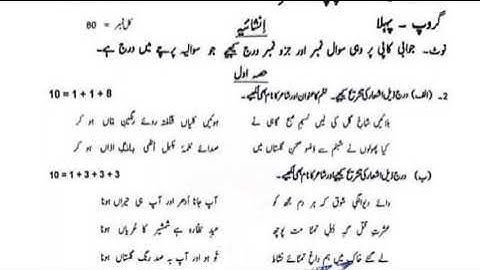 گروپ - پہلا انشائیہ کل نمبر = 80
نوٹ- جوابی کاپی پر وہی سوال نمبر اور جزو نمبر درج کیجیے جو سوالیہ پرچے میں درج ہے۔
حصہ اول
2- (الف) درج ذیل اشعار کی تشریح کیجیے۔ نظم کا عنوان اور شاعر کا نام بھی لکھیے۔ 10 = 1 + 1 + 8
بلائیں شاخ گل کی لیں نسیم صبح گاہی نے ہوئیں کلیاں شگفتہ روئے رنگین بتاں ہو کر
کیا پھولوں نے شبنم سے وضو صحن گلستاں میں صدائے نغمۂ بلبل اٹھی بانگ اذاں ہو کر
(ب) درج ذیل اشعار کی تشریح کیجیے اور شاعر کا نام بھی لکھیے۔ 10 = 1 + 3 + 3 + 3
وائے دیوانگی شوق کہ ہر دم مجھ کو آپ جانا اُدھر اور آپ ہی حیراں ہونا
عشرت قتل گہہ اہل تمنا مت پوچھ عید نظارہ ہے شمشیر کا عریاں ہونا
لے گئے خاک میں ہم داغ تمنائے نشاط تو ہو اور آپ بہ صد رنگ گلستاں ہونا